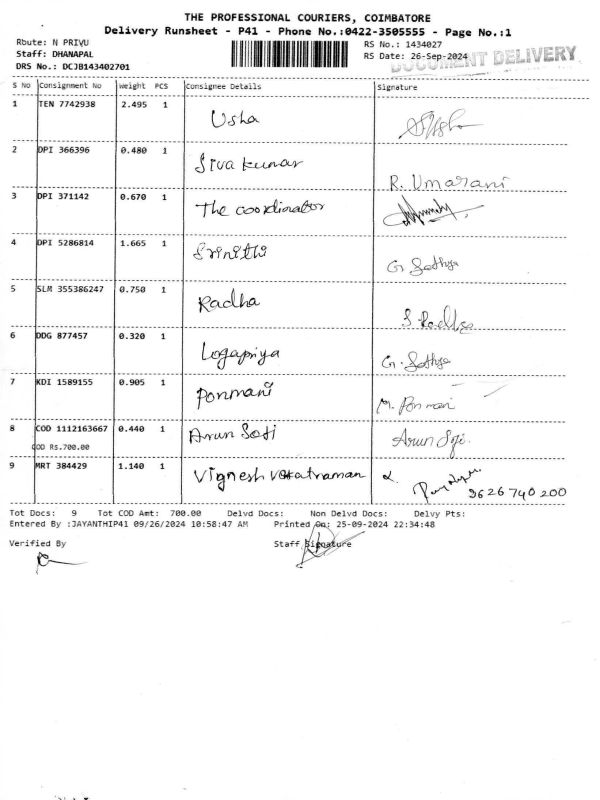 THE PROFESSIONAL COURIERS, COIMBATORE
Delivery Runsheet - P41 - Phone No.:0422-3505555 - Page No.:1
Route: N PRIVU
RS No.: 1434027
Staff: DHANAPAL
RS Date: 26-Sep-2024
DOCUMENT DELIVERY
DRS No.: DCJB143402701
S No Consignment No Weight PCS Consignee Details Signature
1 TEN 7742938 2.495 1 Usha Usha
2 DPI 366396 0.480 1 Siva kumar R. Umarani
3 DPI 371142 0.670 1 The coordinator
4 DPI 5286814 1.665 1 Srinithi G. Sathya
5 SLM 355386247 0.750 1 Radha S Radha
6 DDG 877457 0.320 1 Logapriya G. Sathya
7 KDI 1589155 0.905 1 Ponmani M. Ponmani
8 COD 1112163667 0.440 1 Arun Soji Arun Soji.
COD Rs.700.00
9 MRT 384429 1.140 1 Vignesh 9626740200
Tot Docs: 9 Tot COD Amt: 700.00 Delvd Docs: Non Delvd Docs: Delvy Pts:
Entered By :JAYANTHIP41 09/26/2024 10:58:47 AM Printed On: 25-09-2024 22:34:48
Verified By Staff Signature